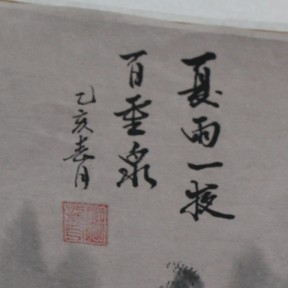 夏雨一夜
百重泉
乙亥春月